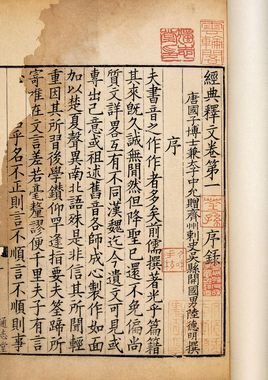 經典釋文卷第一 序錄
唐國子博士兼太子中允贈齊州刺史吳縣開國男陸德明撰
序
夫書音之作作者多矣前儒撰著光乎篇籍
其來既久誠無閒然但降聖已還不免偏尚
質文詳畧互有不同漢魏迄今遺文可見或
專出己意或祖述舊音各師成心製作如面
加以楚夏聲異南北語殊是非信其所聞輕
重因其所習後學鑽仰罕逢指要夫筌蹄所
寄惟在文言差若毫釐謬便千里夫子有言
乎名不正則言不順言不順則事
通志堂